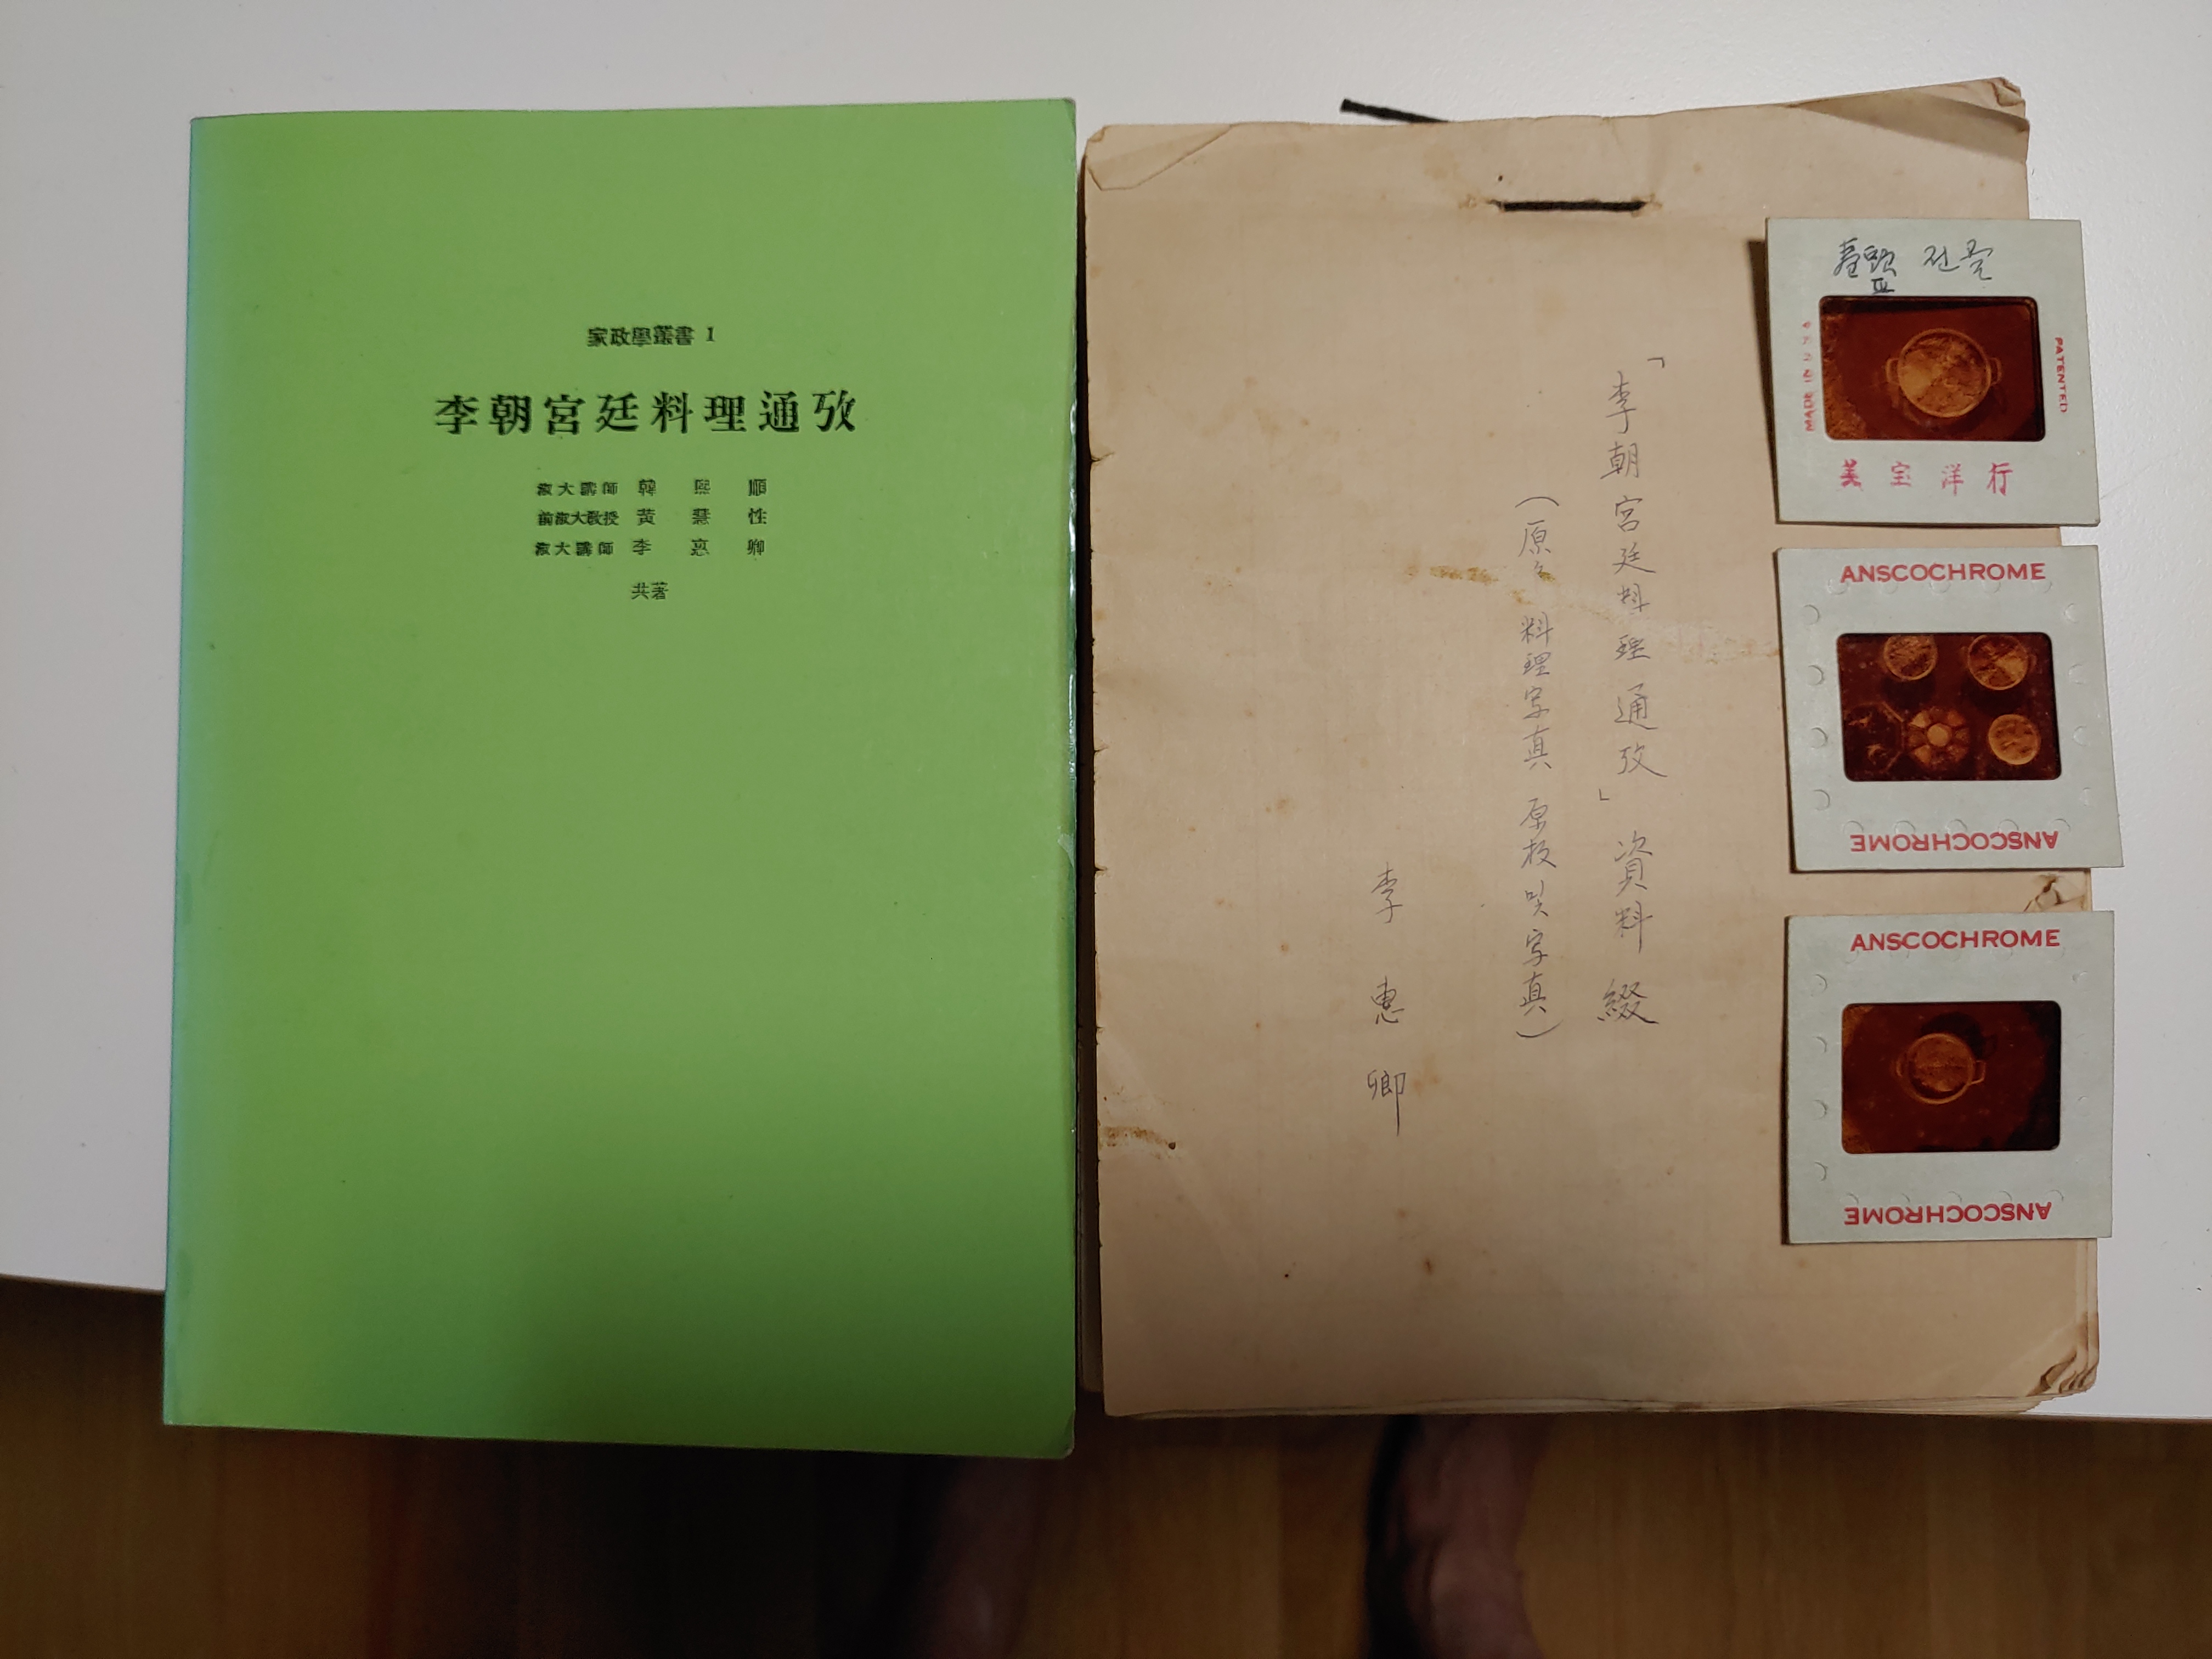 家政學叢書 1
李朝宮廷料理通攷
淑大講師 韓 熙 順
前淑大敎授 黃 慧 性
淑大講師 李 惠 卿
共著
「李朝宮廷料理通攷」資料 綴
(原色 料理写真 原板 및 写真)
李 惠 卿
전골
PATENTED
美宝洋行
ANSCOCHROME
ANSCOCHROME
ANSCOCHROME
ANSCOCHROME